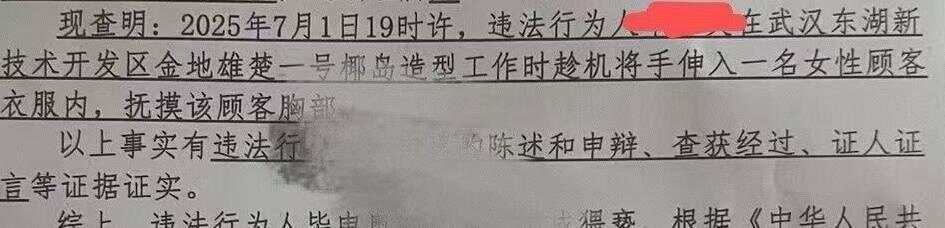 现查明：2025年7月1日19时许，违法行为人在武汉东湖新
技术开发区金地雄楚一号椰岛造型工作时趁机将手伸入一名女性顾客
衣服内，抚摸该顾客胸部
以上事实有违法行的陈述和申辩、查获经过、证人证
言等证据证实。
综上，违法行为人猥亵，根据《中华人民共